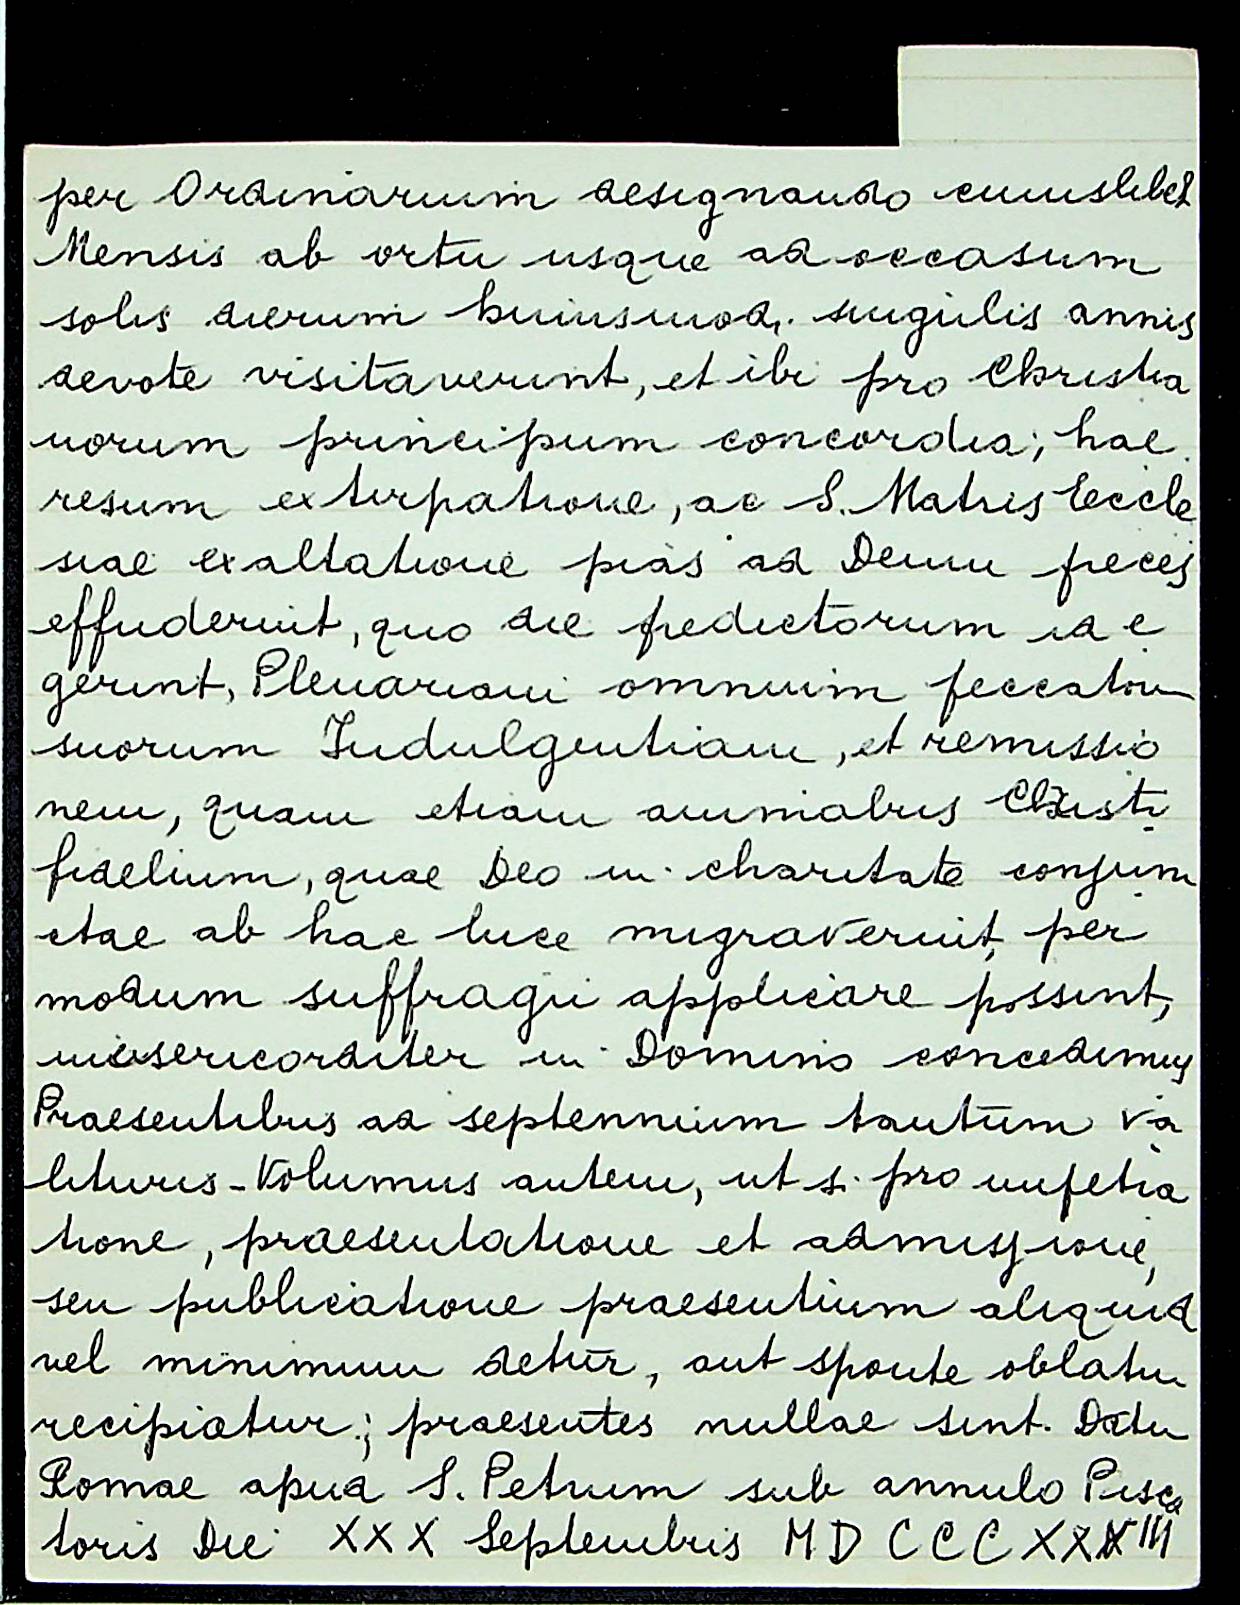 per Ordinarium designando cuiuslibet
Mensis ab ortu usque ad occasum
solis dierum huiusmodi singulis annis
devote visitaverint, et ibi pro Christia
norum principum concordia, hae
resum extirpatione, ac S. Matris Eccle
siae exaltatione pias ad Deum preces
effuderint, quo die predictorum id e
gerint, Plenariam omnium peccatou
suorum Indulgentiam, et remissio
nem, quam etiam animabus Christi
fidelium, quae Deo in charitate conjun
ctae ab hac luce migraverint, per
modum suffragii applicare possint,
misericorditer in Domino concedimus
Praesentibus ad septennium tantum va
lituris - Volumus autem, ut si pro impetra
tione, praesentatione et admissione,
seu publicatione praesentium aliquid
vel minimum detur, aut sponte oblatu
recipiatur; praesentes nullae sint. Datu
Romae apud S. Petrum sub annulo Pisca
toris Die XXX Septembris MDCCCXXXIII